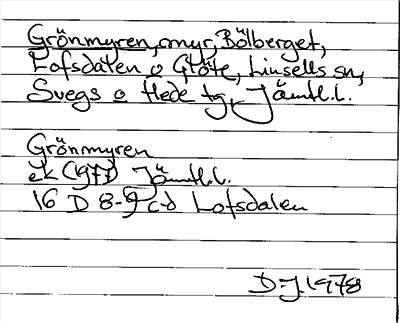 Grönmyren, myr, Bölberget,
Lofsdalen o Glöte, Linsells sn,
Svegs o Hede tg, Jämtl.l.
Grönmyren
ek (1977) Jämtl.l.
16 D 8-9 c-d Lofsdalen
D-J. 1978